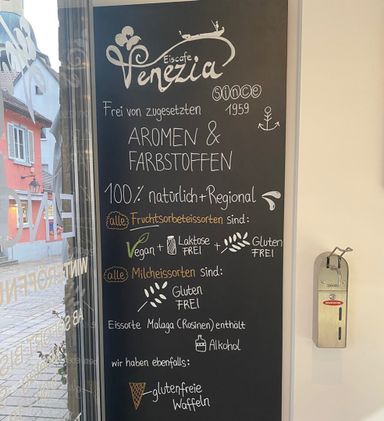 Eiscafe
Venezia
Since
1959
Frei von zugesetzten
AROMEN &
FARBSTOFFEN
100% natürlich + Regional
alle Fruchtsorbeteissorten sind:
Vegan + Laktose FREI + Gluten FREI
alle Milcheissorten sind:
Gluten
FREI
Eissorte Malaga (Rosinen) enthält
Alkohol
wir haben ebenfalls:
glutenfreie
Waffeln